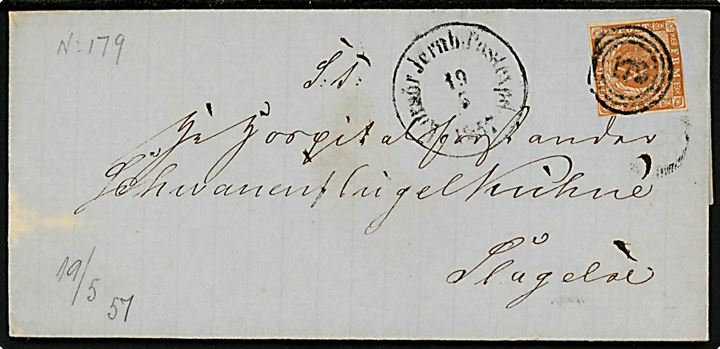 N: 179
S: T:
Korsör Jernb. Postexp.
19
5
1857
179
Hr Hospitalforstander
Schwanenflügel Kühne
Slagelse
19/5 57